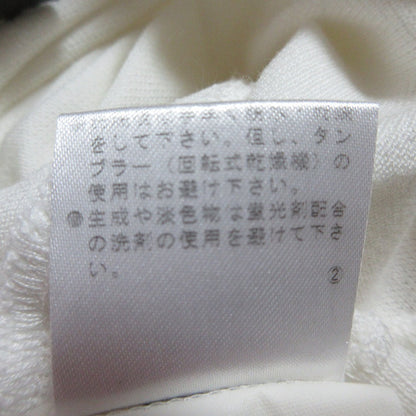 をして下さい。但し、タン
ブラー（回転式乾燥機）の
使用はお避け下さい。
生成や淡色物は蛍光剤配合
の洗剤の使用を避けて下さ
い。
②